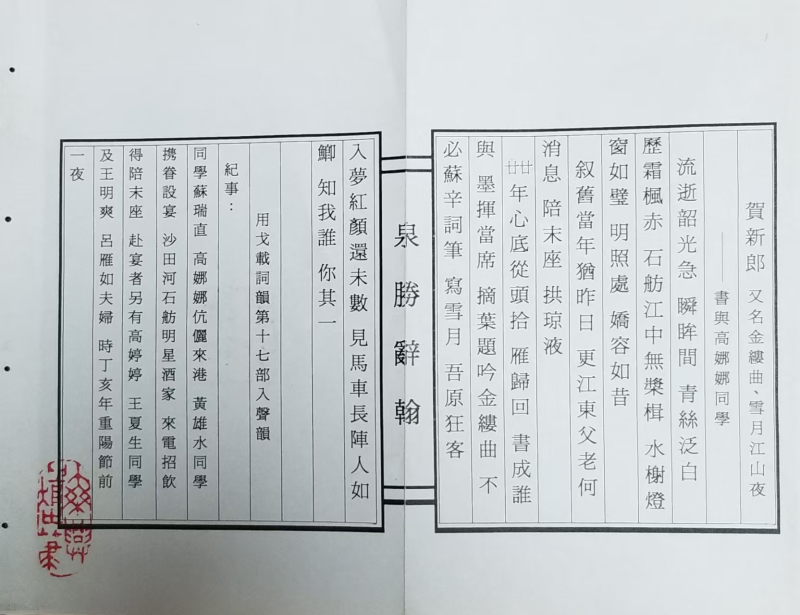 賀新郎 又名金縷曲、雪月江山夜
——書與高娜娜同學
流逝韶光急 瞬眸間 青絲泛白
歷霜楓赤 石舫江中無槳楫 水榭燈
窗如璧 明照處 嬌容如昔
叙舊當年猶昨日 更江東父老何
消息 陪末座 拱琼液
廿廿年心底從頭拾 雁歸回 書成誰
與 墨揮當席 摘葉題吟金縷曲 不
必蘇辛詞筆 寫雪月 吾原狂客
泉勝辭翰
入夢紅顏還未數 見馬車長陣人如
鯽 知我誰 你其一
用戈載詞韻第十七部入聲韻
紀事：
同學蘇瑞直 高娜娜伉儷來港 黃雄水同學
携眷設宴 沙田河石舫明星酒家 來電招飲
得陪末座 赴宴者另有高婷婷 王夏生同學
及王明爽 呂雁如夫婦 時丁亥年重陽節前
一夜